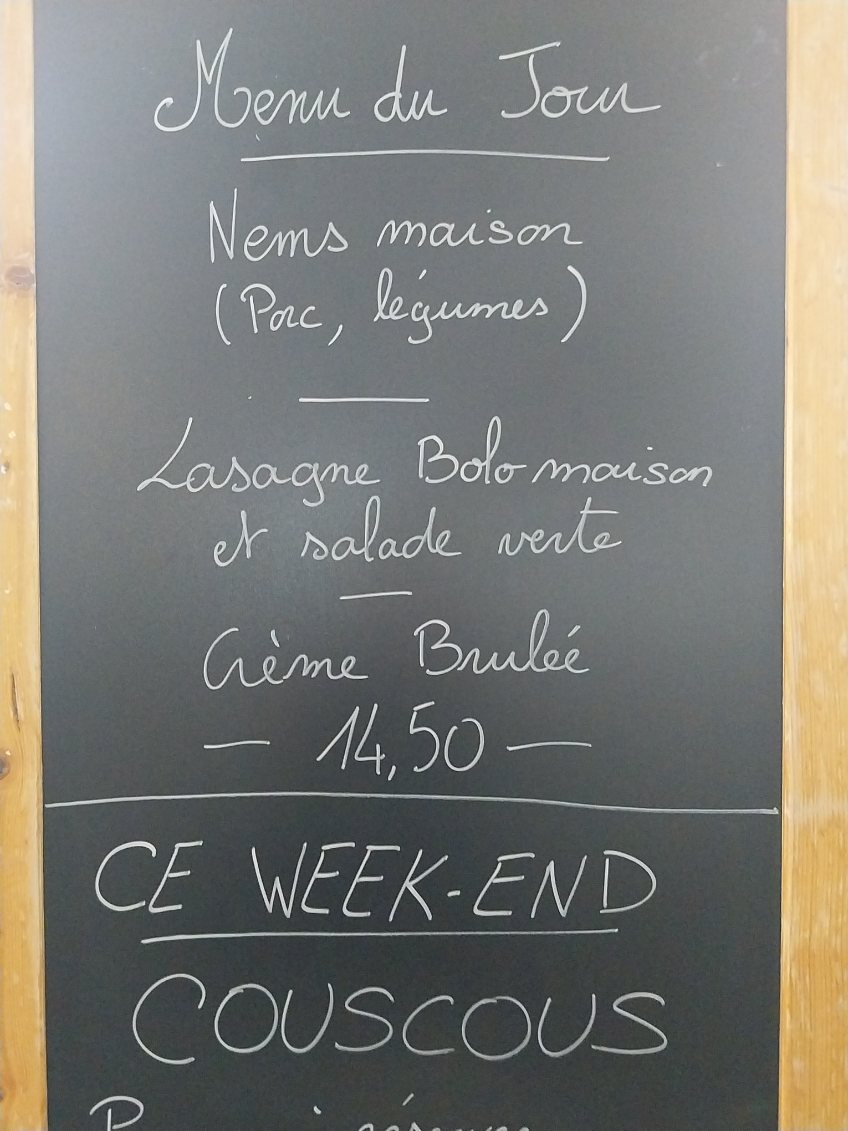 Menu du Jour
Nems maison
(Porc, légumes)
Lasagne Bolo maison
et salade verte
Crème Bruléé
— 14,50 —
CE WEEK-END
COUSCOUS